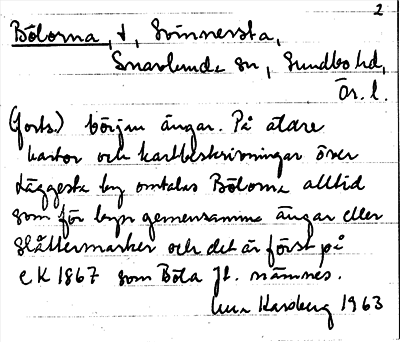 2
Bölorna, †, Svinnersta,
Snavlunda sn, Sundbo hd,
Ör. l.
(forts.) början ängar. På äldre
kartor och kartbeskrivningar över
Läggesta by omtalas Bölorna alltid
som för byn gemensamma ängar eller
slåttermarker och det är först på
eK 1867 som Böla Jl. nämnes.
Karsberg 1963